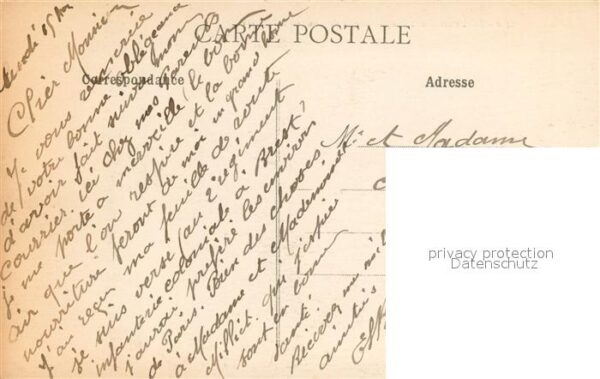 CARTE POSTALE
Correspondance
Adresse
Mr et Madame
privacy protection
Datenschutz
Lundi 15
Cher Monsieur
Je vous remercie
de votre bonne obligeance
d'avoir fait suivre mon
courrier. Ici chez nos parents
je me porte à merveille le bon
air que l'on respire et la bonne
nourriture feront de moi un grand
J'ai reçu ma feuille de route
je suis versé au 2e régiment
infanterie coloniale à Brest
j'aurais préféré les environs
de Paris. Bien des choses
à Madame et Mademoiselle
qui j'espère
sont en bonne
santé
Recevez
amitiés